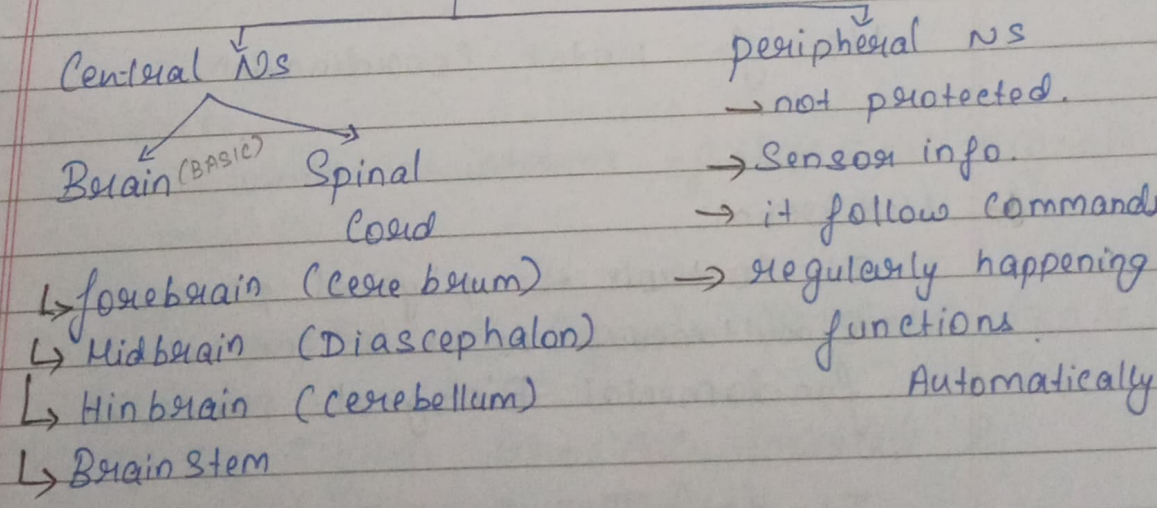 Central NS
Brain (BASIC)
Spinal
Cord
forebrain (cere brum)
Midbrain (Diascephalon)
Hinbrain (cerebellum)
Brain stem
peripheral NS
→ not protected.
→ Sensor info.
→ it follow command
→ regularly happening
functions.
Automatically